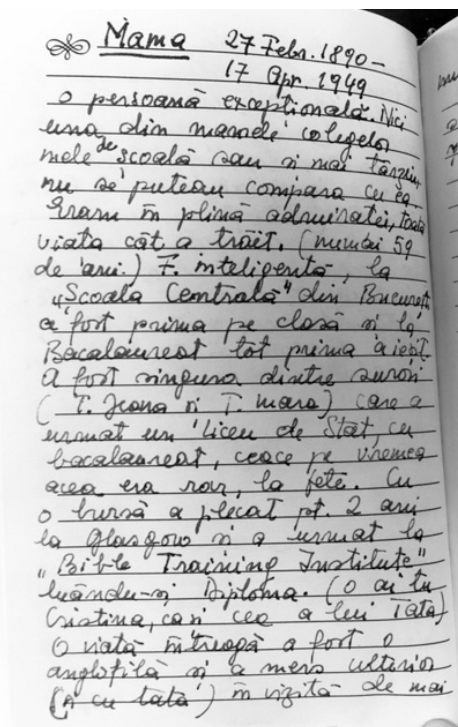 Mama 27 Febr. 1890 –
17 Apr. 1949
O persoană excepțională. Nici
una din mamele colegelor
mele de școală sau și mai târziu,
nu se puteau compara cu ea.
Eram în plină admirației, toată
viața cât a trăit. (numai 59
de ani.) F. inteligentă, la
"Școala Centrală" din București
a fost prima pe clasă și la
Bacalaureat tot prima a ieșit.
A fost singura dintre surori
(T. Jeana și T. Mara) care a
urmat un Liceu de Stat, cu
bacalaureat, ceace pe vremea
acea era rar, la fete. Cu
o bursă a plecat pt. 2 ani
la Glasgow și a urmat la
"Bible Training Institute"
luându-și Diploma. (O ai tu
Cristina, ca și cea a lui Tata)
O viață întreagă a fost o
anglofilă și a mers ulterior
( cu tata) în vizită de mai